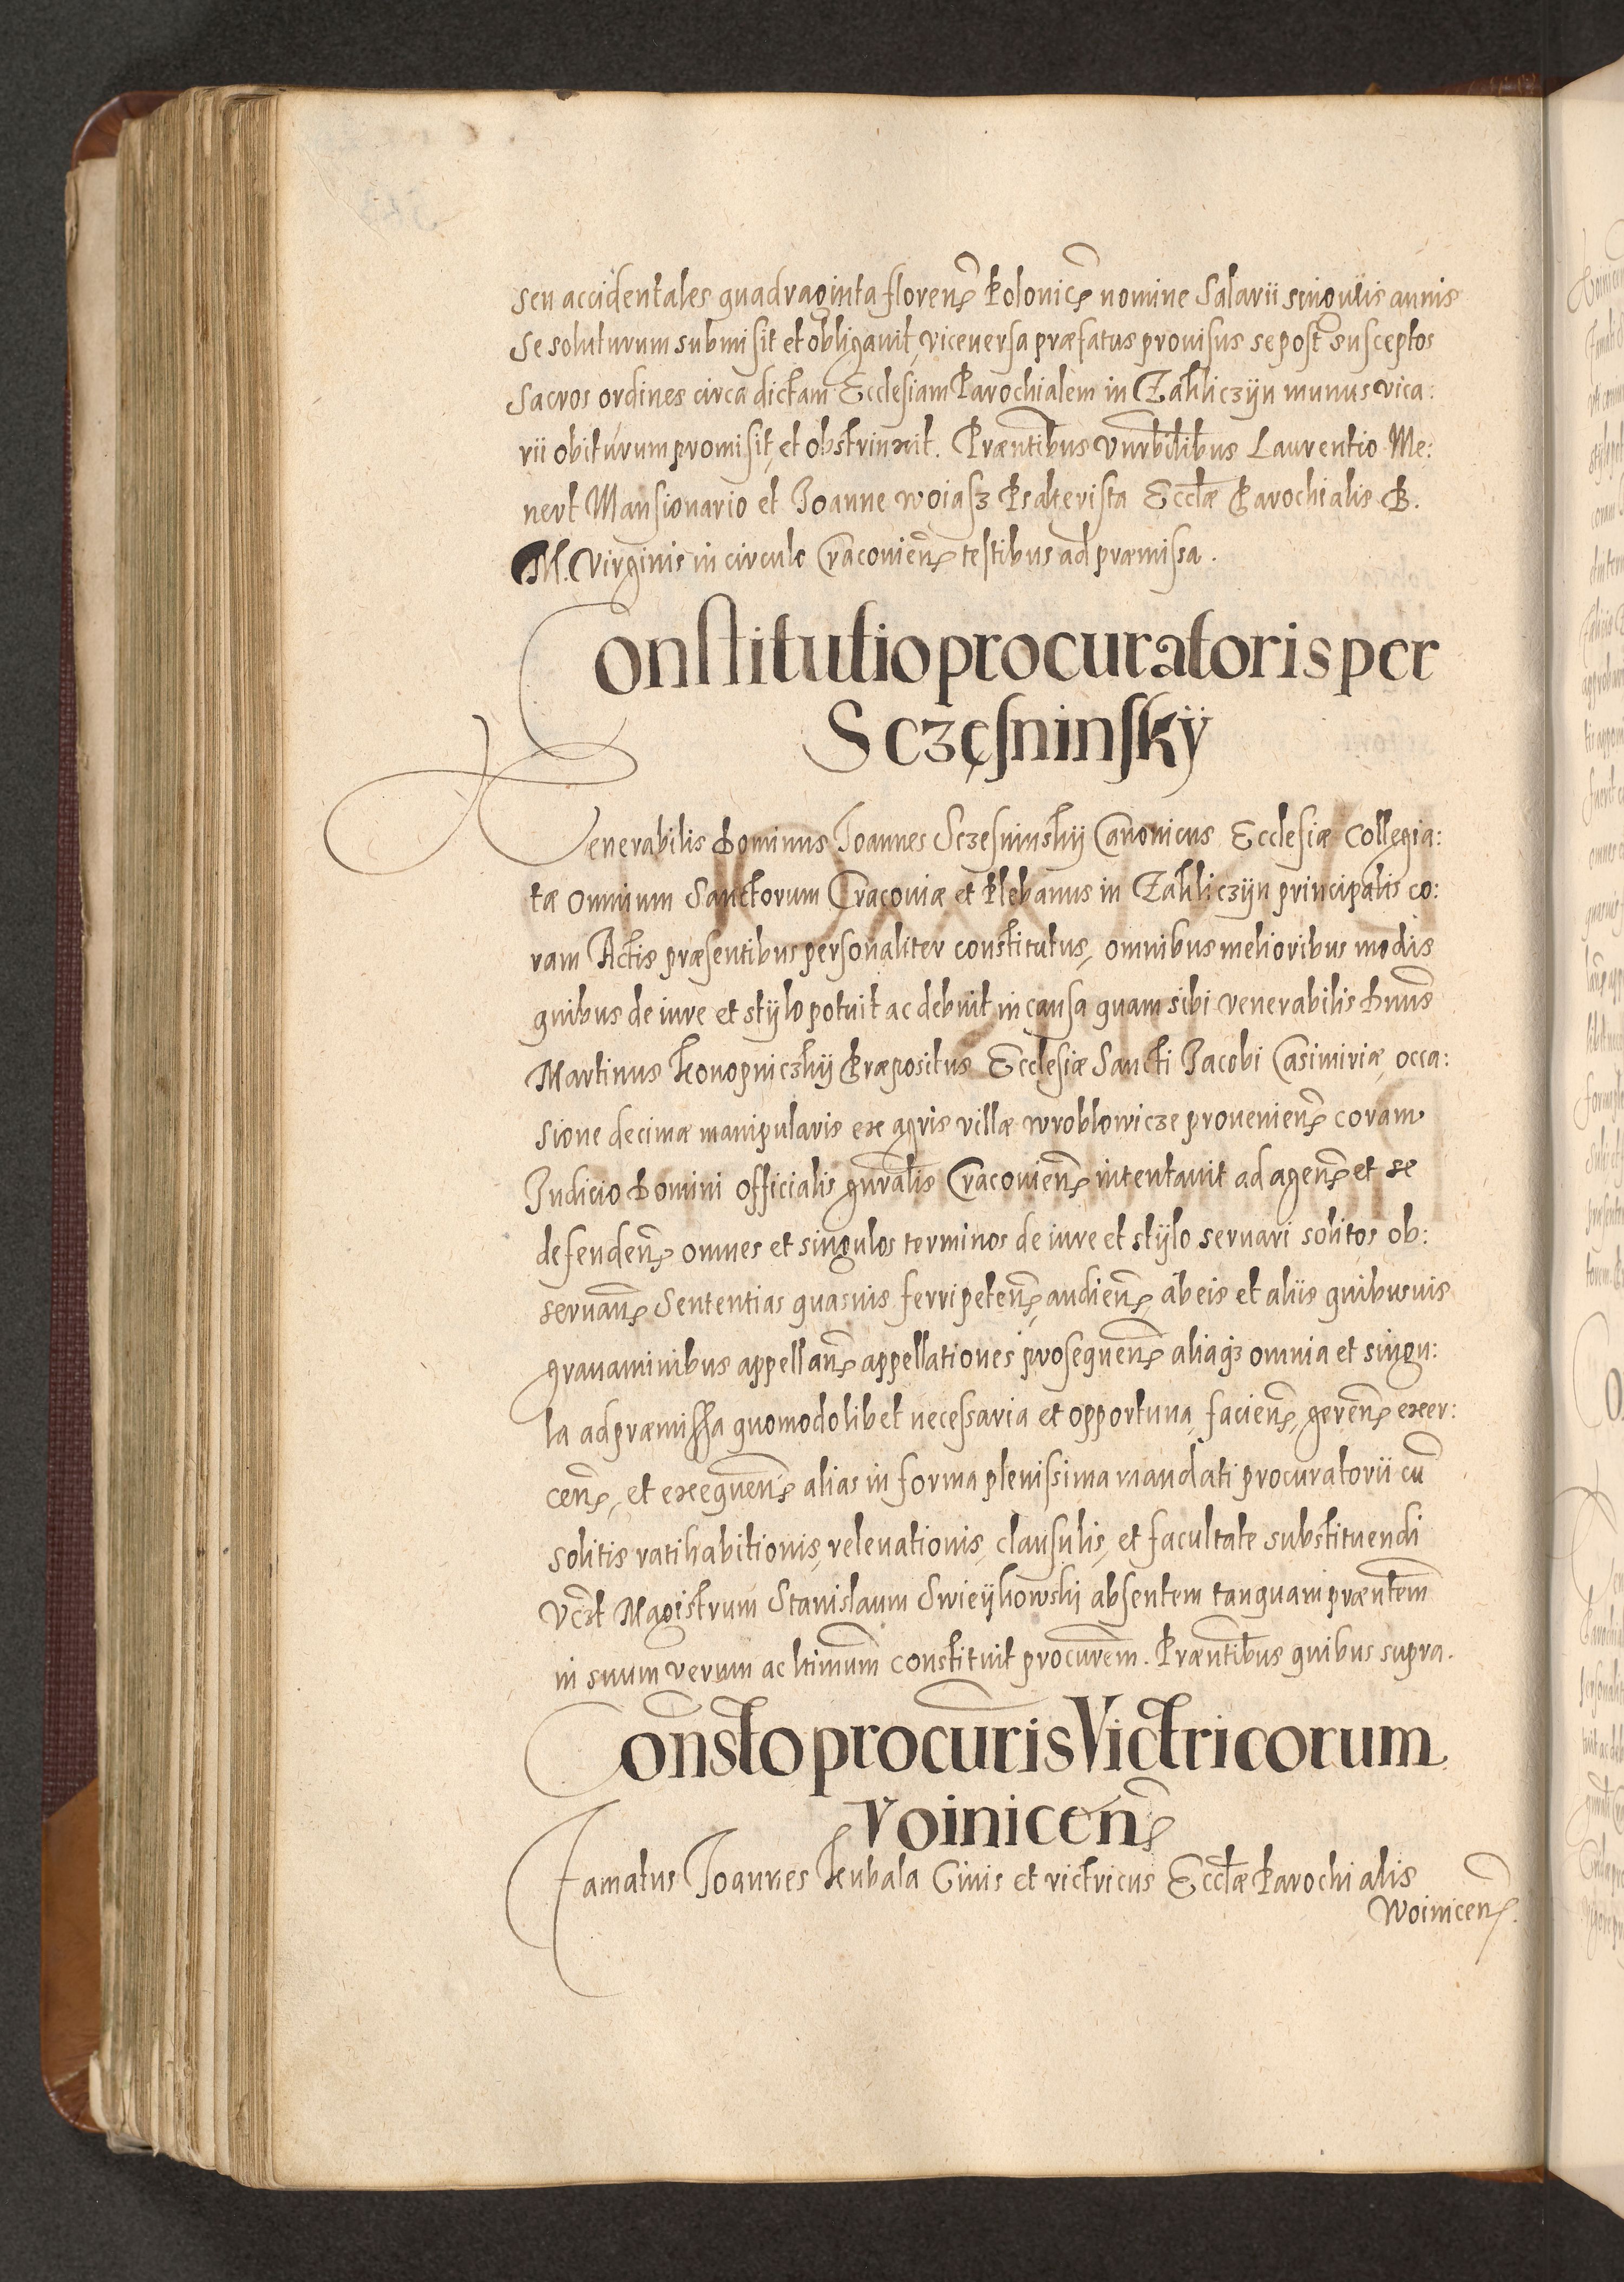 seu accidentales quadraginta floreñ Poloniç nomine Salarii singulis annis
se soluturum submisit et obligauit, viceuersa præfatus prouisus se post susceptos
sacros ordines circa dictam Ecclesiam Parochialem in Zakliczÿn munus vica:
rii obiturum promisit, et obstrinxit. Præntibus Vnrbilibus Laurentio Me:
nert Mansionario et Joanne Woiasz Psalterista Ecclæ Parochialis B.
M. Virginis in circulo Cracovieñ testibus ad præmissa.
Constitutio procuratoris per
Sczęsninskÿ
Venerabilis Dominus Joannes Sczesninskÿ Canonicus Ecclesiæ Collegia:
tæ Omnium Sanctorum Cracoviæ et Plebanus in Zakliczÿn principalis co:
ram Actis præsentibus personaliter constitutus, omnibus melioribus modis
quibus de iure et stÿlo potuit ac debuit in causa quam sibi venerabilis Dnus
Martinus Konopniczkÿ Præpositus Ecclesiæ Sancti Jacobi Casimiriæ, occa:
sione decimæ manipularis ex agris villæ Wroblowicze provenieñ coram
Judicio Domini Officialis gñralis Cracovieñ intentauit ad ageñ et se
defendeñ omnes et singulos terminos de iure et stÿlo seruari solitos ob:
seruañ Sententias quasuis ferri peteñ, audieñ, ab eis et aliis quibusuis
grauaminibus appellañ appellationes prosequeñ aliaqz omnia et singu:
la ad præmissa quomodolibet necessaria et opportuna, facieñ, gereñ exer:
ceñ, et exequeñ, alias in forma plenissima mandati procuratorii cũ
solitis ratihabitionis, releuationis, clausulis, et facultate substituendi
Vczt Magistrum Stanislaum Swieÿkowskj absentem tanquam præntem
in suum verum ac ltimum constituit procurem. Præntibus quibus supra.
Consto procuris Victricorum
Voiniceñ
Famatus Joannes Kubala Ciuis et victricus Ecclæ Parochialis
Woiniceñ.